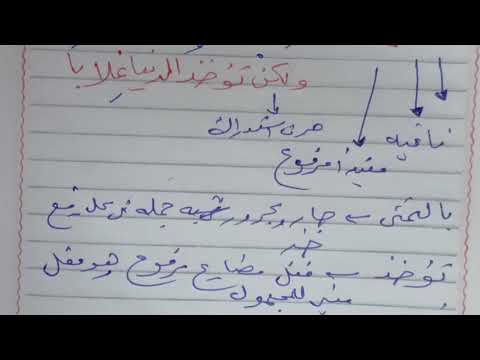 ولكن تؤخذ الدنيا غلابا
نافيه
حرف استدراك
مبتدأ مرفوع
بالتمني ← جار ومجرور شبه جمله في محل رفع
خبر
تؤخذ ← فعل مضارع مرفوع وهو فعل
مبني للمجهول